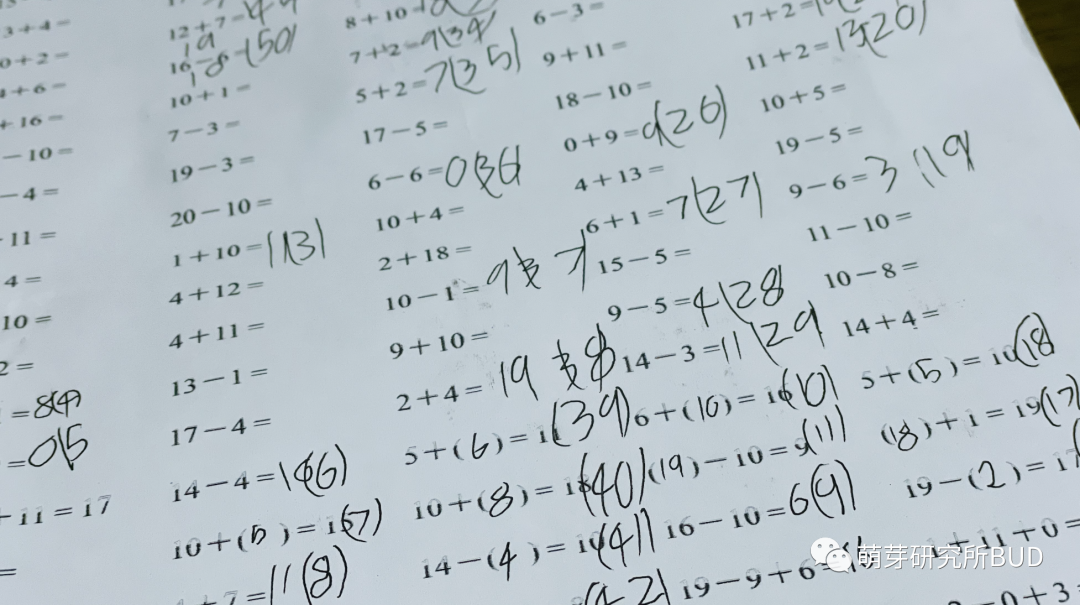 3+4=
0+2=
4+6=
+16=
−10=
−4=
11=
4=
10=
2=
=8(4)
=0(5
11=17
=
12+7=
19
10+1=
7−3=
19−3=
20−10=
1+10=11(3)
4+12=
4+11=
13−1=
17−4=
14−4=10(6)
10+(5)=15(7)
+7=11(8)
8+10=
7+2=9(34)
5+2=7(35)
17−5=
6−6=0(36)
10+4=
2+18=
10−1=9
9+10=
2+4=19
5+(6)=11(39)
10+(8)=18(40)
14−(4)=10(41)
6−3=
9+11=
18−10=
0+9=9(26)
4+13=
6+1=7(27)
15−5=
9−5=4(28
14−3=11(29
6+(10)=16(10)
(19)−10=9(11)
16−10=6(9)
19−9+6=
17+2=
11+2=13(20)
10+5=
19−5=
9−6=3(19
11−10=
10−8=
14+4=
5+(5)=10(18
(18)+1=19(17)
19−(2)=17
+11+0=
−0+3=
萌芽研究所BUD